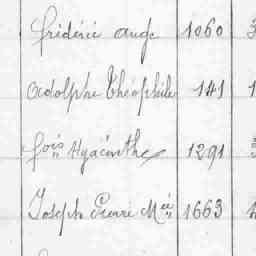 frédéric ange 1060
adolphe théophile 141
fois hyacinthe 1291
Joseph Pierre Mie 1663